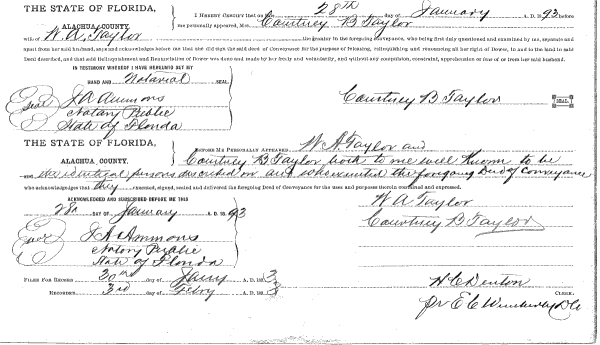 THE STATE OF FLORIDA,
ALACHUA COUNTY.
I HEREBY CERTIFY that on the 28th day of January A. D. 1893 before
me personally appeared, Mrs. Courtney B Taylor
wife of W. A. Taylor the grantor in the foregoing conveyance, who being first duly questioned and examined by me, separate and
apart from her said husband, and acknowledges before me that she did sign the said deed of Conveyance for the purpose of releasing, relinquishing and renouncing all her right of Dower, in and to the land in said
Deed described, and that said Relinquishment and Renunciation of Dower was done and made by her freely and voluntarily, and without any compulsion, constraint, apprehension or fear of or from her said husband.
IN TESTIMONY WHEREOF I HAVE HEREUNTO SET BY
HAND AND Notarial SEAL
Seal J. A. Ammons
Notary Public
State of Florida
Courtney B Taylor SEAL.
THE STATE OF FLORIDA,
ALACHUA, COUNTY.
BEFORE ME PERSONALLY APPEARED W. A. Taylor and
Courtney B Taylor both to me well Known to be
the identical persons described in and who executed the foregoing Deed of Conveyance
who acknowledges that they executed, signed, sealed and delivered the foregoing Deed of Conveyance for the uses and purposes therein contained and expressed.
ACKNOWLEDGED AND SUBSCRIBED BEFORE ME THIS
28th DAY OF January A. D. 1893
Seal J A Ammons
Notary Public
State of Florida
W A Taylor
Courtney B Taylor
FILED FOR RECORD 30th day of Jany A. D. 1893
RECORDED 3rd day of Feby A. D. 1893
H C Denton
CLERK.
pr E C Wimberly DC